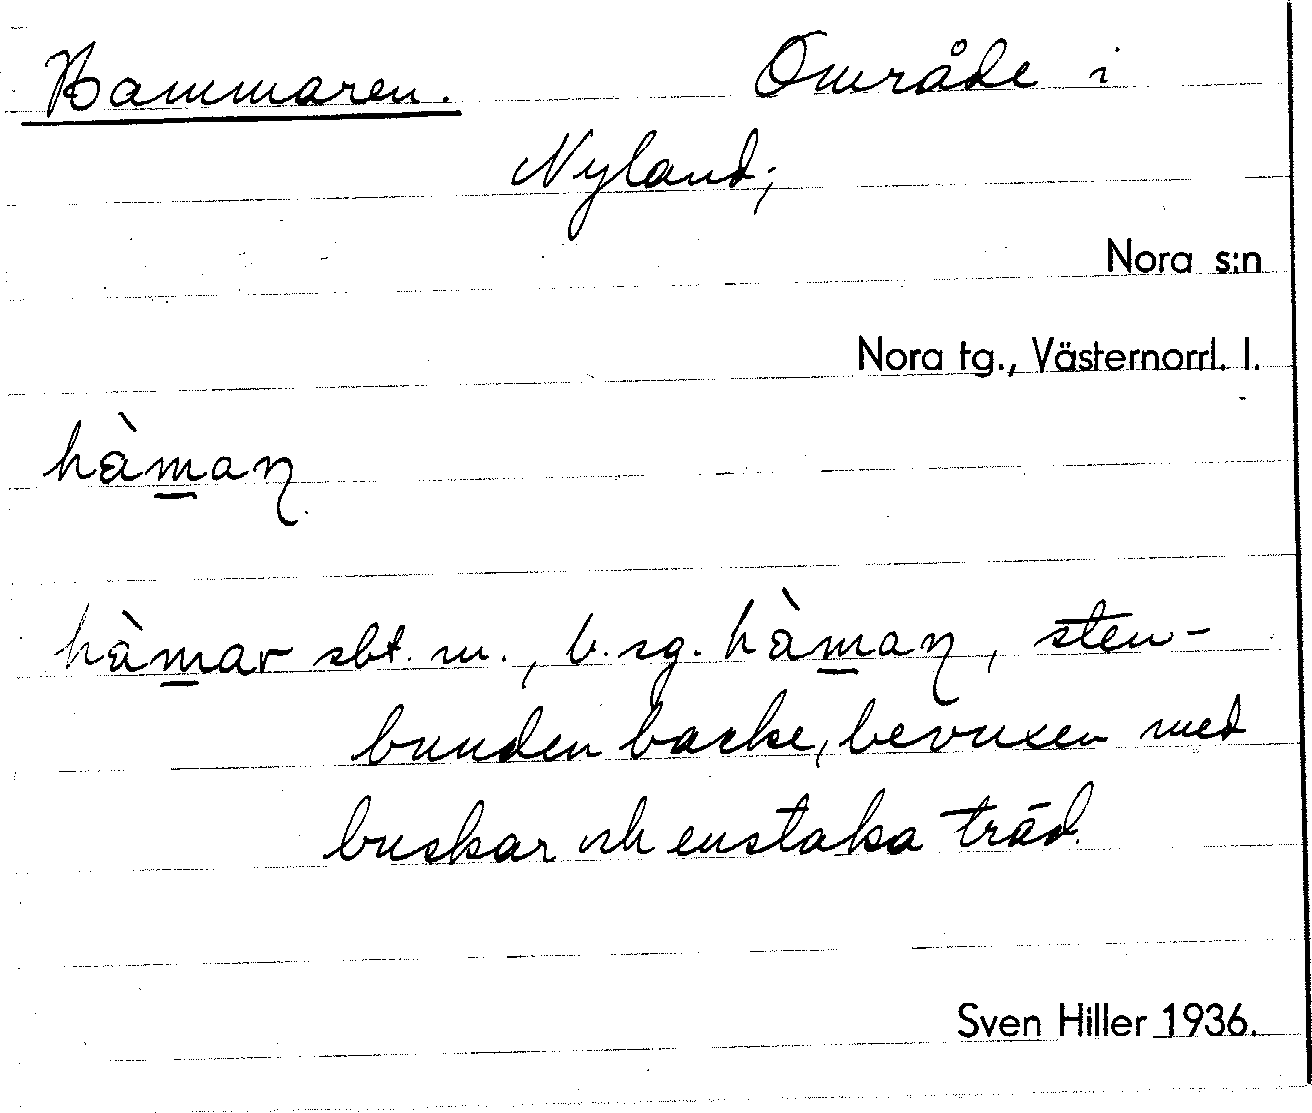 Hammaren. Område i
Nyland;
Nora s:n
Nora tg., Västernorrl. l.
hàm̲aɳ
hàm̲ar sbt. m., b. sg. hàm̲aɳ, sten-
bunden backe, bevuxen med
buskar och enstaka träd.
Sven Hiller 1936.